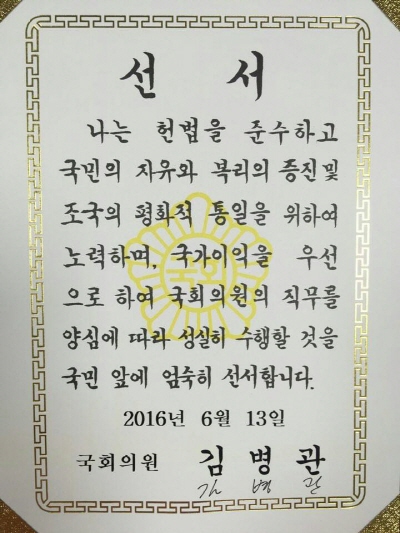 선 서
나는 헌법을 준수하고
국민의 자유와 복리의 증진및
조국의 평화적 통일을 위하여
노력하며, 국가이익을 우선
으로 하여 국회의원의 직무를
양심에 따라 성실히 수행할 것을
국민 앞에 엄숙히 선서합니다.
2016년 6월 13일
국회의원 김병관
김 병 관
국회